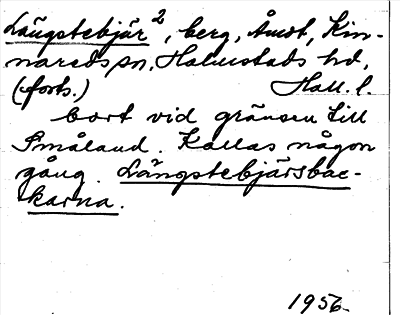 Längstebjär², berg, Åmot, Kin-
nareds sn, Halmstads hd,
(forts.) Hall. l.
bort vid gränsen till
Småland. Kallas någon
gång Längstebjärsbac-
karna.
1956